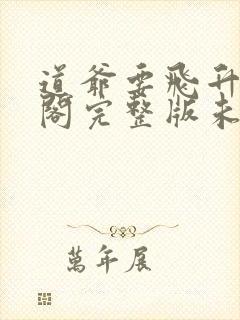 道爷要飛升
閣完整版未
萬年展